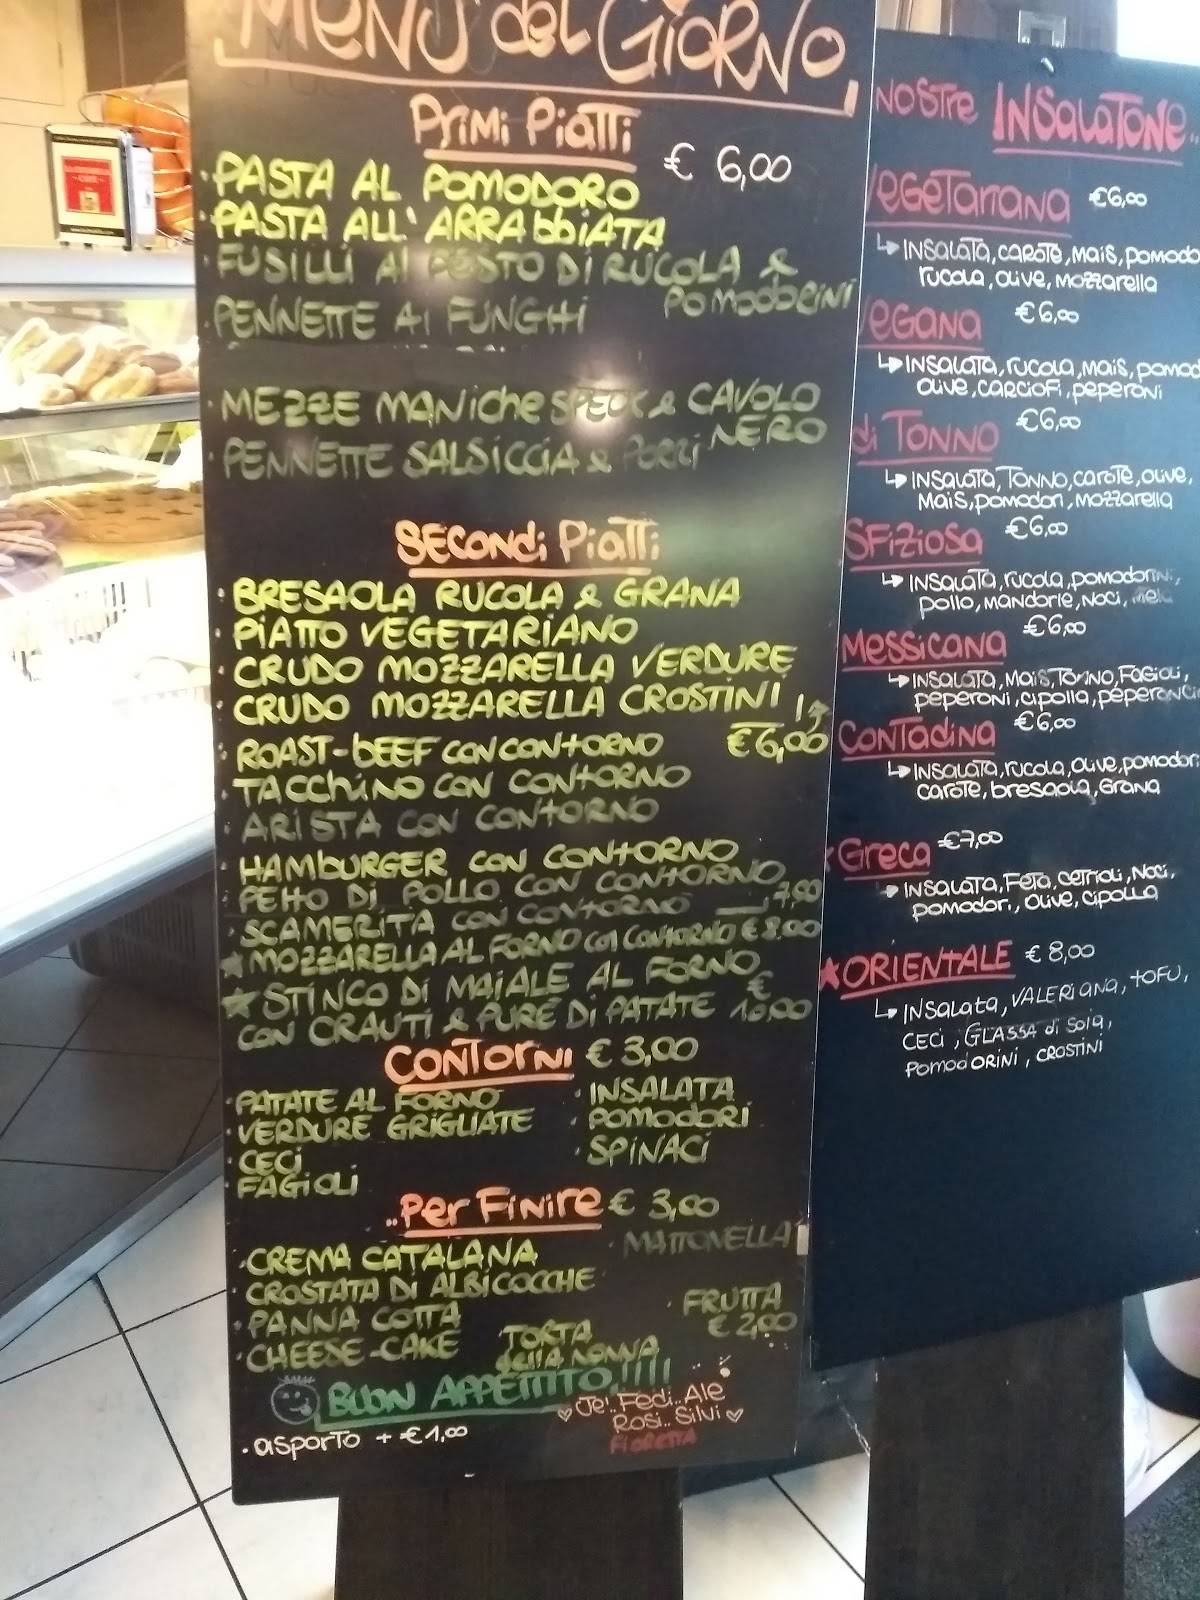 MENÙ del GIORNO
Primi Piatti
€ 6,00
PASTA AL POMODORO
PASTA ALL' ARRABBIATA
FUSILLI AL PESTO DI RUCOLA &
POMODORINI
PENNETTE AI FUNGHI
MEZZE MANICHE SPECK & CAVOLO
NERO
PENNETTE SALSICCIA & PORRI
SECONDI Piatti
BRESAOLA RUCOLA & GRANA
PIATTO VEGETARIANO
CRUDO MOZZARELLA VERDURE
CRUDO MOZZARELLA CROSTINI
€ 6,00
ROAST-BEEF CON CONTORNO
TACCHINO CON CONTORNO
ARISTA CON CONTORNO
HAMBURGER CON CONTORNO
PETTO DI POLLO CON CONTORNO
SCAMERITA CON CONTORNO 7,00
MOZZARELLA AL FORNO CON CONTORNO € 8.00
STINCO DI MAIALE AL FORNO €
CON CRAUTI & PURE DI PATATE 10,00
CONTORNI € 3,00
PATATE AL FORNO
VERDURE GRIGLIATE
CECI
FAGIOLI
INSALATA
POMODORI
SPINACI
..Per Finire € 3,00
CREMA CATALANA
CROSTATA DI ALBICOCCHE
PANNA COTTA
CHEESE-CAKE
MATTONELLA
FRUTTA
€ 2,00
TORTA
della NONNA
BUON APPETTITO!!!!!
Je'.. Fedi.. Ale
Rosi.. Silvi
FIORETTA
asporto + €1,00
NOSTRE INSALATONE..
VEGETARIANA €6,00
INSALATA, CAROTE, MAIS, POMODO
RUCOLA, OLIVE, MOZZARELLA
VEGANA €6,00
INSALATA, RUCOLA, MAIS, POMOD
OLIVE, CARCIOFI, PEPERONI
di TONNO €6,00
INSALATA, TONNO, CAROTE, OLIVE,
MAIS, POMODORI, MOZZARELLA
SFIZIOSA €6,00
INSALATA, RUCOLA, POMODORINI,
POLLO, MANDORLE, NOCI, MELA
MESSICANA €6,00
INSALATA, MAIS, TONNO, FAGIOLI,
PEPERONI, CIPOLLA, PEPERONCI
CONTADINA €6,00
INSALATA, RUCOLA, OLIVE, POMODORI
CAROTE, BRESAOLA, GRANA
Greca €7,00
INSALATA, FETA, CETRIOLI, NOCI,
POMODORI, OLIVE, CIPOLLA
ORIENTALE € 8,00
INSALATA, VALERIANA, TOFU,
CECI, GLASSA di SOIA,
POMODORINI, CROSTINI